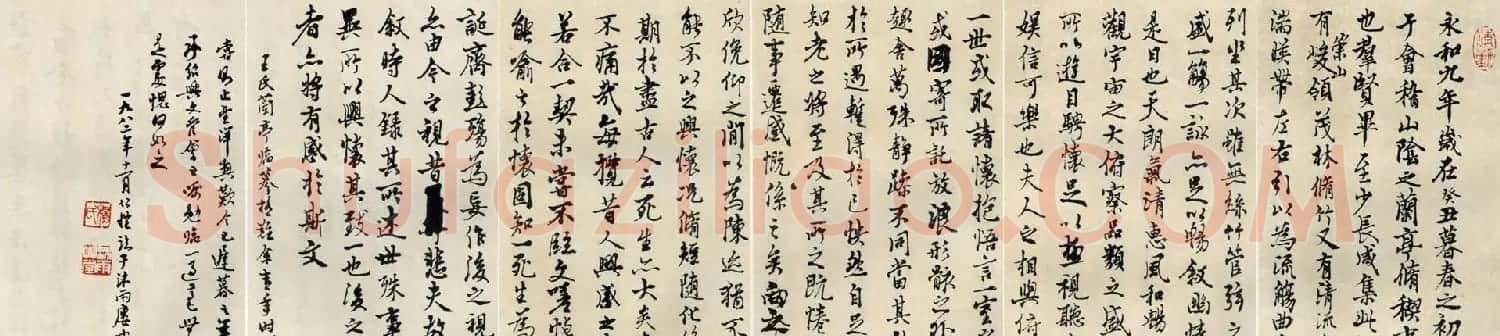 永和九年歲在癸丑暮春之初
于會稽山陰之蘭亭脩禊
也羣賢畢至少長咸集此
有崇山峻領茂林脩竹又有清流
湍暎帶左右引以為流觴曲
列坐其次雖無絲竹管弦之
盛一觴一詠亦足以暢敘幽情
是日也天朗氣清惠風和暢
觀宇宙之大俯察品類之盛
所以遊目騁懷足以極視聽
娛信可樂也夫人之相與俯
一世或取諸懷抱悟言一室
或因寄所託放浪形骸之外
趣舍萬殊靜躁不同當其
於所遇暫得於己怏然自足
知老之將至及其所之既惓
隨事遷感慨係之矣向之
欣俛仰之間以為陳迹猶不
能不以之興懷況脩短隨化
期於盡古人云死生亦大矣
不痛哉每攬昔人興感之
若合一契未嘗不臨文嗟悼
能喻之於懷固知一死生為
誕齊彭殤為妄作後之視
亦由今之視昔悲夫故
敘時人錄其所述世殊事
無所以興懷其致一也後之
者亦將有感於斯文
王氏蘭亭臨摹極難余青年時
今已遲暮之年
承紹興文管會之囑勉臨一過
一九八二年
Shufaziliao.com